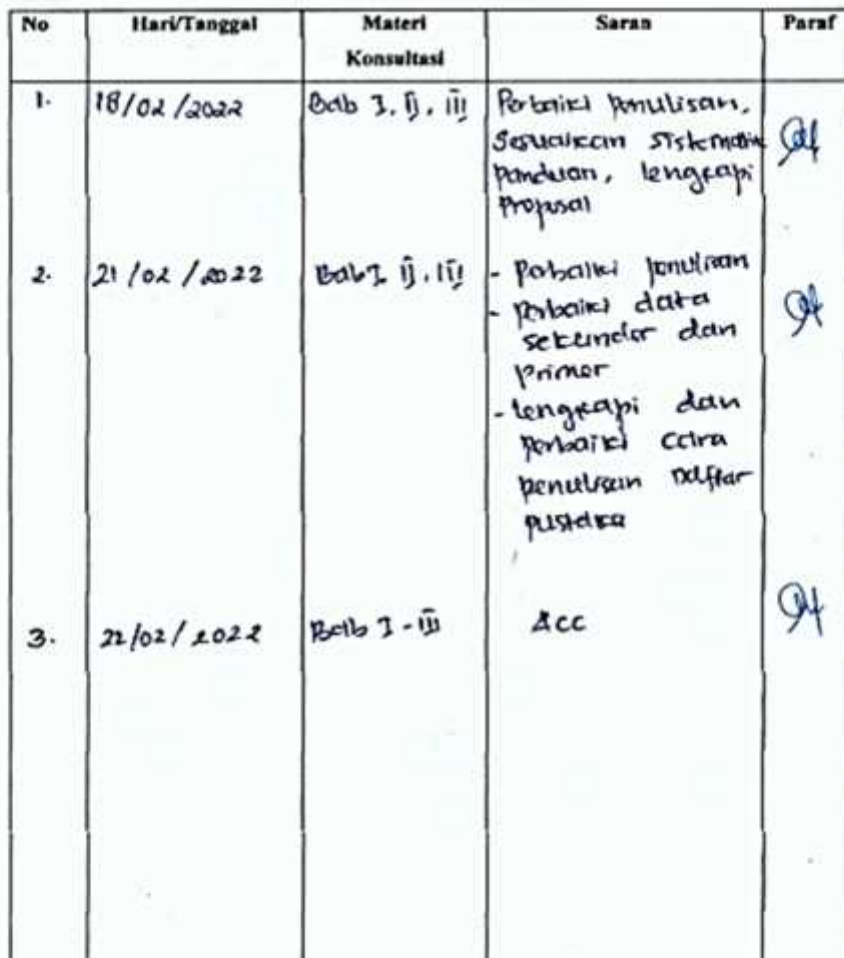 No Hari/Tanggal Materi Konsultasi Saran Paraf
1. 18/02/2022 Bab I, II, III Perbaiki penulisan,
sesuaikan sistematika
panduan, lengkapi
proposal
2. 21/02/2022 Bab I II, III - perbaiki penulisan
- perbaiki data
sekunder dan
primer
- lengkapi dan
perbaiki cara
penulisan Daftar
pustaka
3. 22/02/2022 Bab I - III Acc